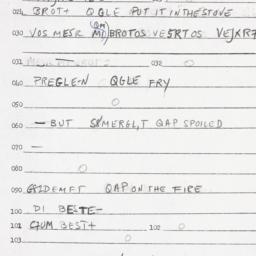 021 BROT+ QGLE PUT IT IN THE STONE
030 VOS MESR BROTOS VESRTOS
031 032
040 PREGLE-N QGLE FRY
050
060 -BUT SMERGL,T QAP SPOILED
070 -
080
090 GIDEMFT QAP ON THE FIRE
100 DI BESTE-
101 CJUM BEST+ 102
103